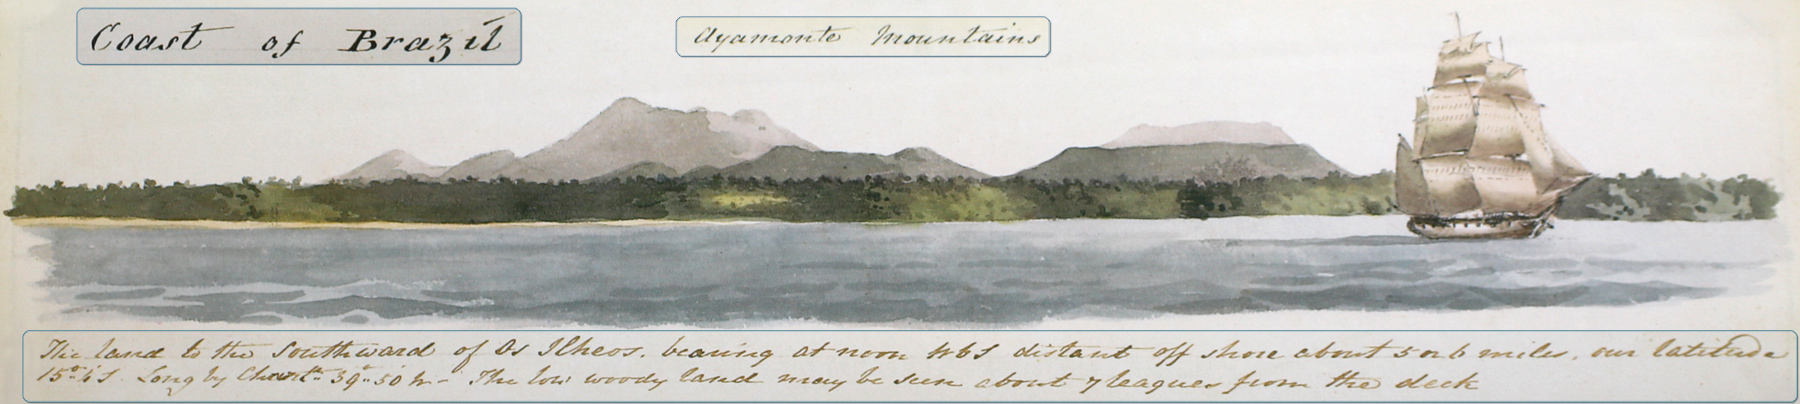 Coast of Brazil
Ayamonte Mountains
The land to the Southward of Os Ilheos. bearing at noon WbS distant off shore about 5 or 6 miles, our latitude
15°.6'S. Long by Chronr. 39°.50 W - The low woody land may be seen about 7 leagues from the deck